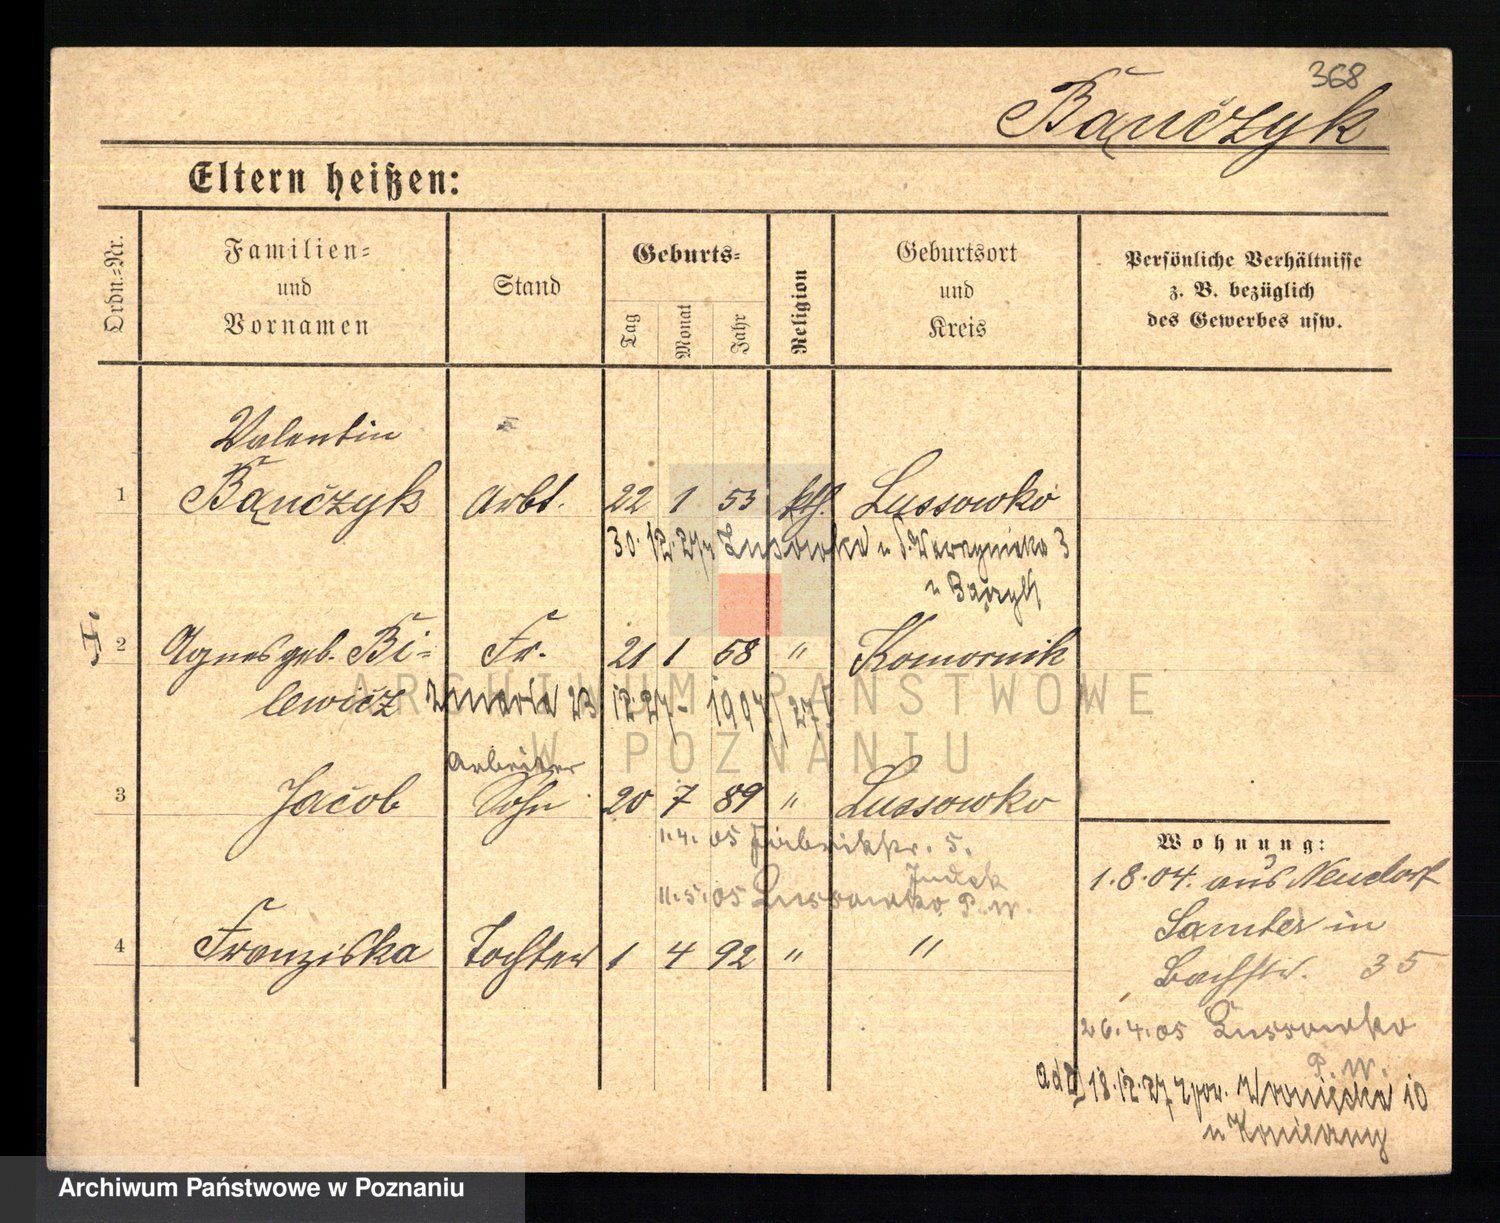 368
Bączyk
Eltern heißen:
Ordn.-Nr.
Familien-
und
Vornamen
Stand
Geburts-
Tag
Monat
Jahr
Religion
Geburtsort
und
Kreis
Persönliche Verhältnisse
z. B. bezüglich
des Gewerbes usw.
Valentin
1 Bączyk Arbt. 22 1 53 kth. Lussowko
30.12.27 Lusowko u 3
u Bączyk
2 Agnes geb. Bi- Fr. 21 1 58 " Komornik
lewicz zmarła 23 12 27 -
Arbeiter
3 Jacob Sohn 20 7 89 " Lussowko
1.4.05 Fabrikstr. 5.
11.5.05 Lussowko P.W.
4 Franziska Tochter 1 4 92 " "
Wohnung:
1.8.04. aus Neudorf
Samter in
Bachstr. 35
26.4.05 Lussowko
P.W.
18.12.27 10
ARCHIWUM PAŃSTWOWE
W POZNANIU
Archiwum Państwowe w Poznaniu